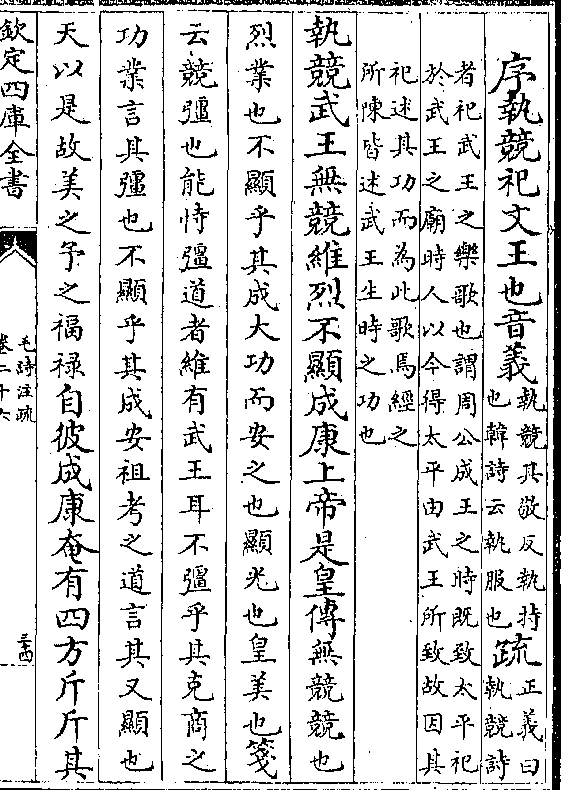 序執競祀文王也音義
執競其敬反執持
也韓詩云執服也
疏
正義曰
執競詩
者祀武王之樂歌也謂周公成王之時既致太平祀
於武王之廟時人以今得太平由武王所致故因其
祀述其功而為此歌焉經之
所陳皆述武王生時之功也
執競武王無競維烈不顯成康上帝是皇傳無競競也
烈業也不顯乎其成大功而安之也顯光也皇美也箋
云競彊也能恃彊道者維有武王耳不彊乎其克商之
功業言其彊也不顯乎其成安祖考之道言其又顯也
天以是故美之予之福祿自彼成康奄有四方斤斤其
欽定四庫全書
毛詩注疏
卷二十六
三四